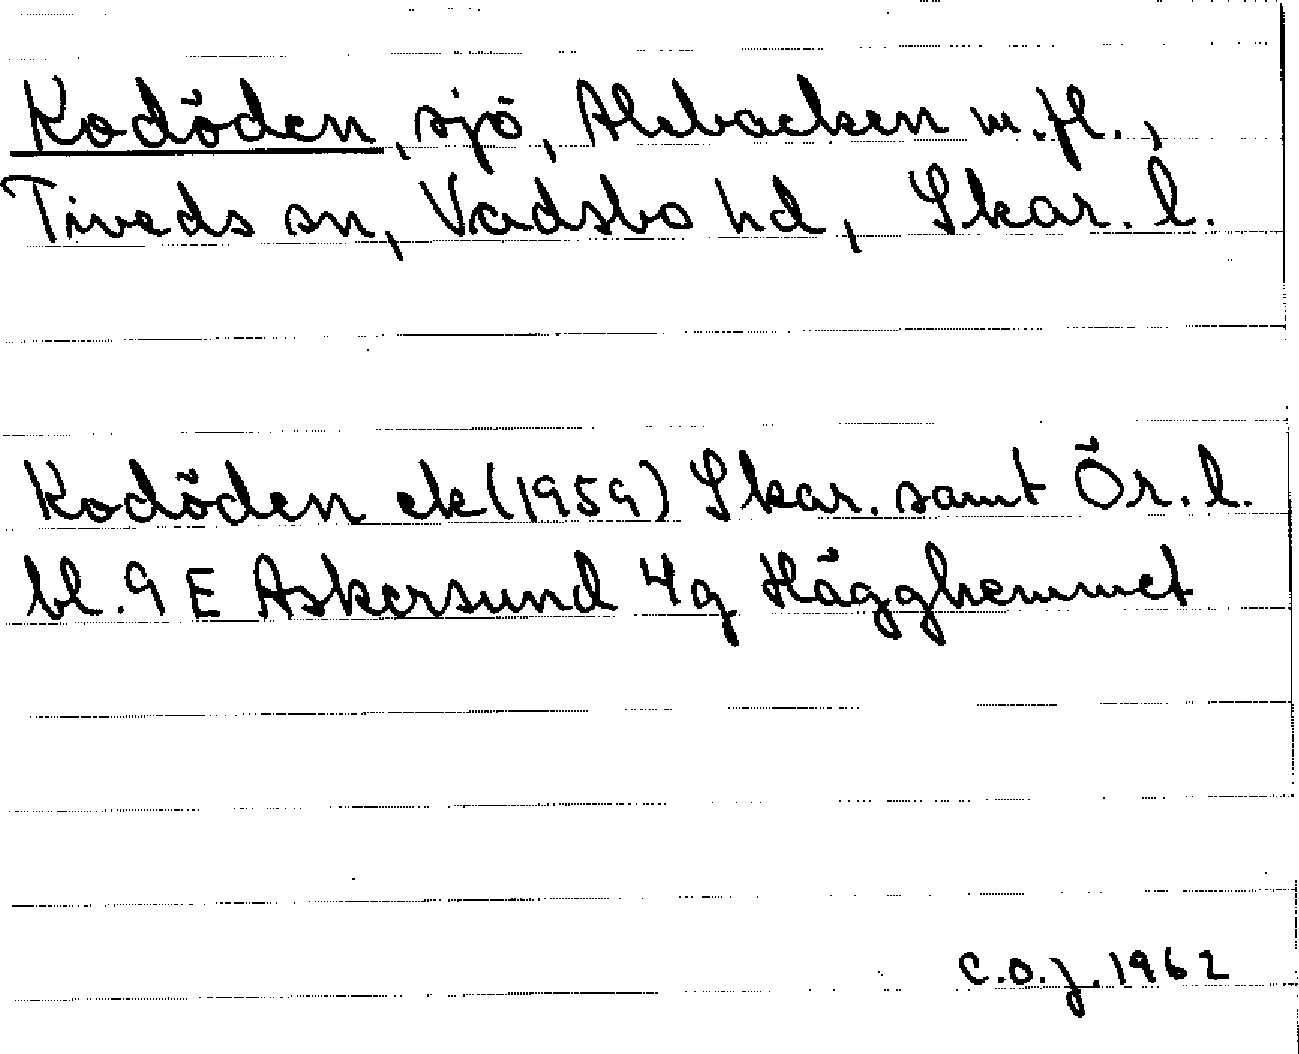 Kodöden, sjö, Alsbacken m.fl.,
Tiveds sn, Vadsbo hd, Skar. l.
Kodöden ek (1959) Skar. samt Ör. l.
bl. 9 E Askersund 4g Hägghemmet
C.O.J. 1962